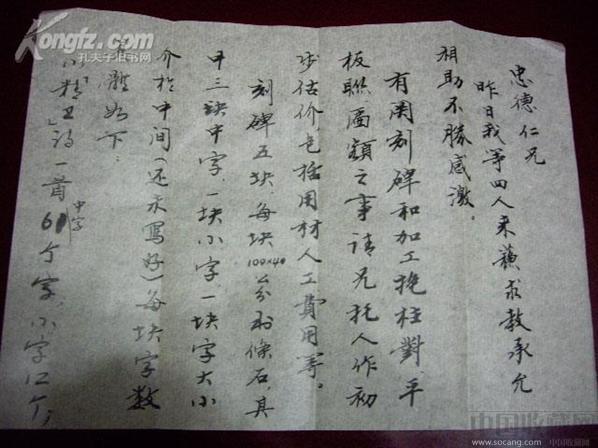 忠德仁兄
昨日我等四人来苏求教承允
相助不勝感激。
有関刻碑和加工抱柱對、平
板联、匾额之事请兄托人作初
步估价包括用材人工費用等。
刻碑五块、每块100×40公分的條石，其
中三块中字，一块小字，一块字大小
介于中间（还未写好）每块字数
下：
诗一首61个字，小字12个，
中字
Kongfz.com
孔夫子旧书网
中国收藏网
www.socang.com 中国收藏网